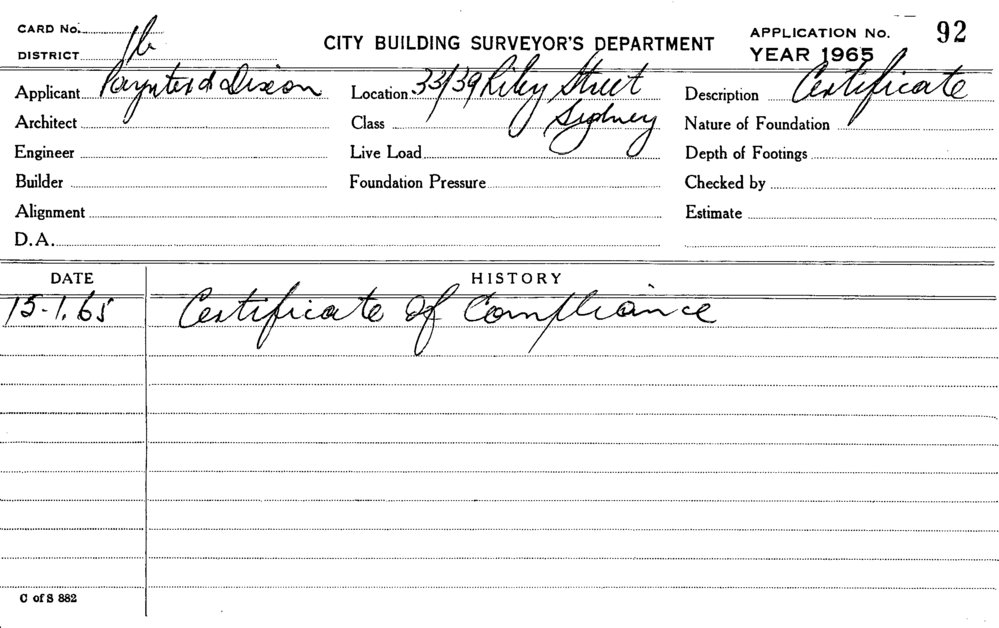 CARD No.
DISTRICT
CITY BUILDING SURVEYOR'S DEPARTMENT
APPLICATION No. 92
YEAR 1965
Applicant Paynter & Dixon Location 33/39 Riley Street Description Certificate
Architect Class Sydney Nature of Foundation
Engineer Live Load Depth of Footings
Builder Foundation Pressure Checked by
Alignment Estimate
D.A.
DATE HISTORY
15.1.65 Certificate of Compliance
C of S 882